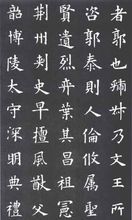 者郭也虢叔乃文王所
咨郭泰則人倫攸屬聖
賢遺烈弈葉其昌祖憲
荆州刺史早擅風猷父
韶博陵太守深明典禮